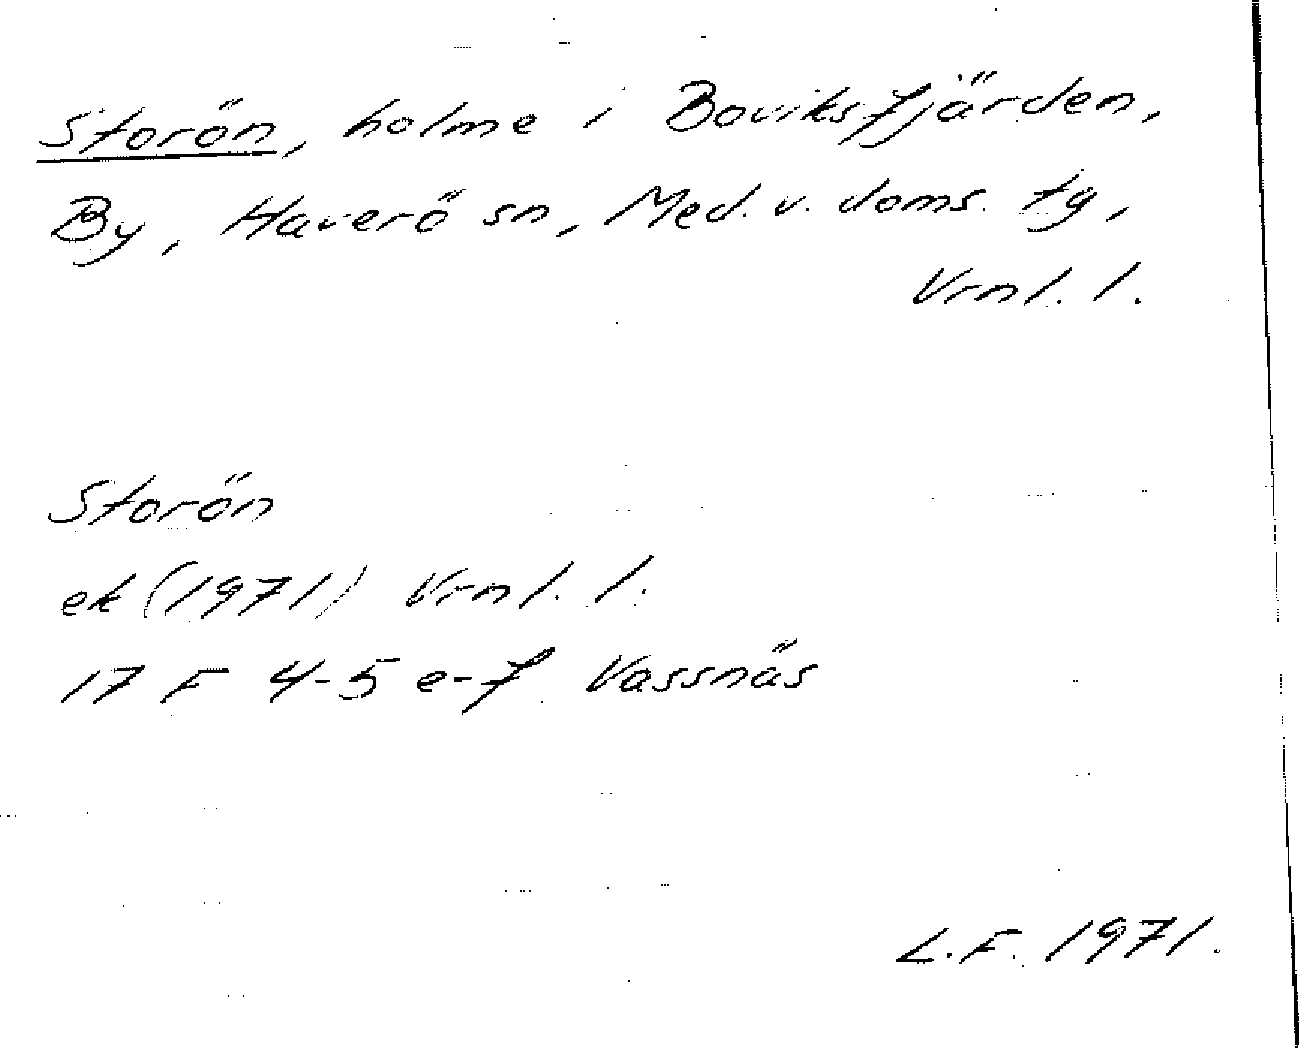 Storön, holme i Boviksfjärden,
By, Haverö sn, Med. v. doms. tg,
Vrnl. l.
Storön
ek (1971) Vrnl. l.
17 F 4-5 e-f Vassnäs
L.F. 1971.